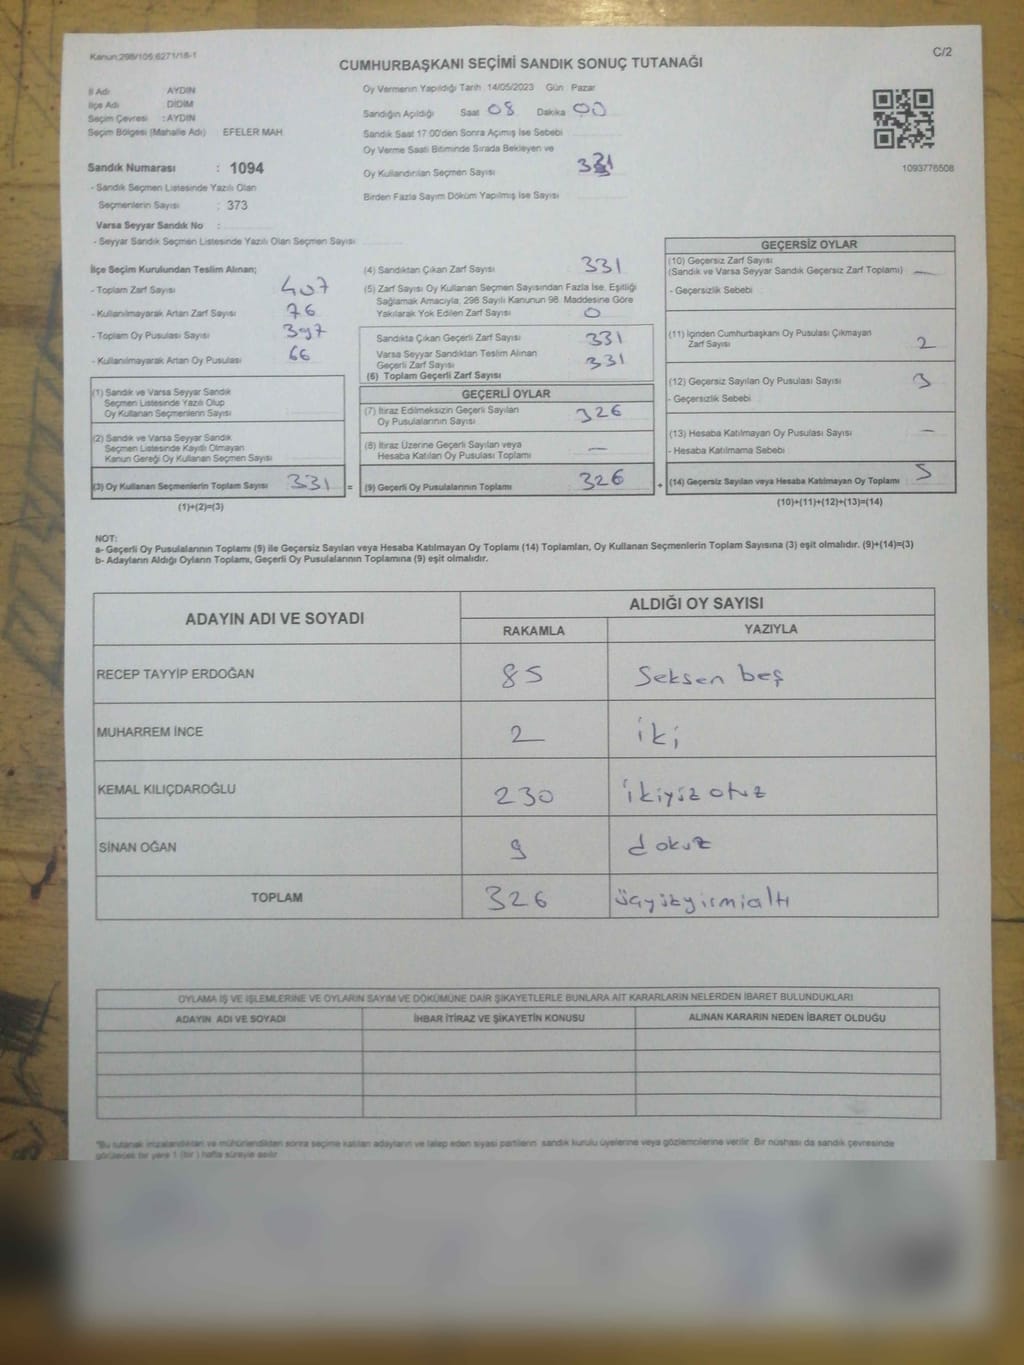 Kanun:298/105;6271/18-1
C/2
CUMHURBAŞKANI SEÇİMİ SANDIK SONUÇ TUTANAĞI
İl Adı AYDIN
İlçe Adı DİDİM
Seçim Çevresi : AYDIN
Seçim Bölgesi (Mahalle Adı) EFELER MAH
Sandık Numarası : 1094
- Sandık Seçmen Listesinde Yazılı Olan
Seçmenlerin Sayısı : 373
Varsa Seyyar Sandık No :
- Seyyar Sandık Seçmen Listesinde Yazılı Olan Seçmen Sayısı
Oy Vermenin Yapıldığı Tarih 14/05/2023 Gün Pazar
Sandığın Açıldığı Saat 08 Dakika 00
Sandık Saat 17:00'den Sonra Açımış İse Sebebi
Oy Verme Saati Bitiminde Sırada Bekleyen ve
Oy Kullandırılan Seçmen Sayısı 331
Birden Fazla Sayım Döküm Yapılmış İse Sayısı
1093776508
İlçe Seçim Kurulundan Teslim Alınan;
- Toplam Zarf Sayısı 407
- Kullanılmayarak Artan Zarf Sayısı 76
- Toplam Oy Pusulası Sayısı 397
- Kullanılmayarak Artan Oy Pusulası 66
(1) Sandık ve Varsa Seyyar Sandık
Seçmen Listesinde Yazılı Olup
Oy Kullanan Seçmenlerin Sayısı
(2) Sandık ve Varsa Seyyar Sandık
Seçmen Listesinde Kayıtlı Olmayan
Kanun Gereği Oy Kullanan Seçmen Sayısı
(3) Oy Kullanan Seçmenlerin Toplam Sayısı 331 =
(1)+(2)=(3)
(4) Sandıktan Çıkan Zarf Sayısı 331
(5) Zarf Sayısı Oy Kullanan Seçmen Sayısından Fazla İse, Eşitliği
Sağlamak Amacıyla, 298 Sayılı Kanunun 98. Maddesine Göre
Yakılarak Yok Edilen Zarf Sayısı 0
Sandıkta Çıkan Geçerli Zarf Sayısı 331
Varsa Seyyar Sandıktan Teslim Alınan
Geçerli Zarf Sayısı 331
(6) Toplam Geçerli Zarf Sayısı
GEÇERLİ OYLAR
(7) İtiraz Edilmeksizin Geçerli Sayılan
Oy Pusulalarının Sayısı 326
(8) İtiraz Üzerine Geçerli Sayılan veya
Hesaba Katılan Oy Pusulası Toplamı —
(9) Geçerli Oy Pusulalarının Toplamı 326 +
GEÇERSİZ OYLAR
(10) Geçersiz Zarf Sayısı
(Sandık ve Varsa Seyyar Sandık Geçersiz Zarf Toplamı) —
- Geçersizlik Sebebi
(11) İçinden Cumhurbaşkanı Oy Pusulası Çıkmayan
Zarf Sayısı 2
(12) Geçersiz Sayılan Oy Pusulası Sayısı 3
- Geçersizlik Sebebi
(13) Hesaba Katılmayan Oy Pusulası Sayısı —
- Hesaba Katılmama Sebebi
(14) Geçersiz Sayılan veya Hesaba Katılmayan Oy Toplamı 5
(10)+(11)+(12)+(13)=(14)
NOT:
a- Geçerli Oy Pusulalarının Toplamı (9) ile Geçersiz Sayılan veya Hesaba Katılmayan Oy Toplamı (14) Toplamları, Oy Kullanan Seçmenlerin Toplam Sayısına (3) eşit olmalıdır. (9)+(14)=(3)
b- Adayların Aldığı Oyların Toplamı, Geçerli Oy Pusulalarının Toplamına (9) eşit olmalıdır.
ADAYIN ADI VE SOYADI ALDIĞI OY SAYISI
RAKAMLA YAZIYLA
RECEP TAYYİP ERDOĞAN 85 Seksen beş
MUHARREM İNCE 2 iki
KEMAL KILIÇDAROĞLU 230 ikiyüz otuz
SİNAN OĞAN 9 dokuz
TOPLAM 326 üçyüzyirmialtı
OYLAMA İŞ VE İŞLEMLERİNE VE OYLARIN SAYIM VE DÖKÜMÜNE DAİR ŞİKAYETLERLE BUNLARA AİT KARARLARIN NELERDEN İBARET BULUNDUKLARI
ADAYIN ADI VE SOYADI İHBAR İTİRAZ VE ŞİKAYETİN KONUSU ALINAN KARARIN NEDEN İBARET OLDUĞU
"Bu tutanak imzalandıktan ve mühürlendikten sonra seçime katılan adayların ve talep eden siyasi partilerin sandık kurulu üyelerine veya gözlemcilerine verilir. Bir nüshası da sandık çevresinde
görülecek bir yere 1 (bir) hafta süreyle asılır.